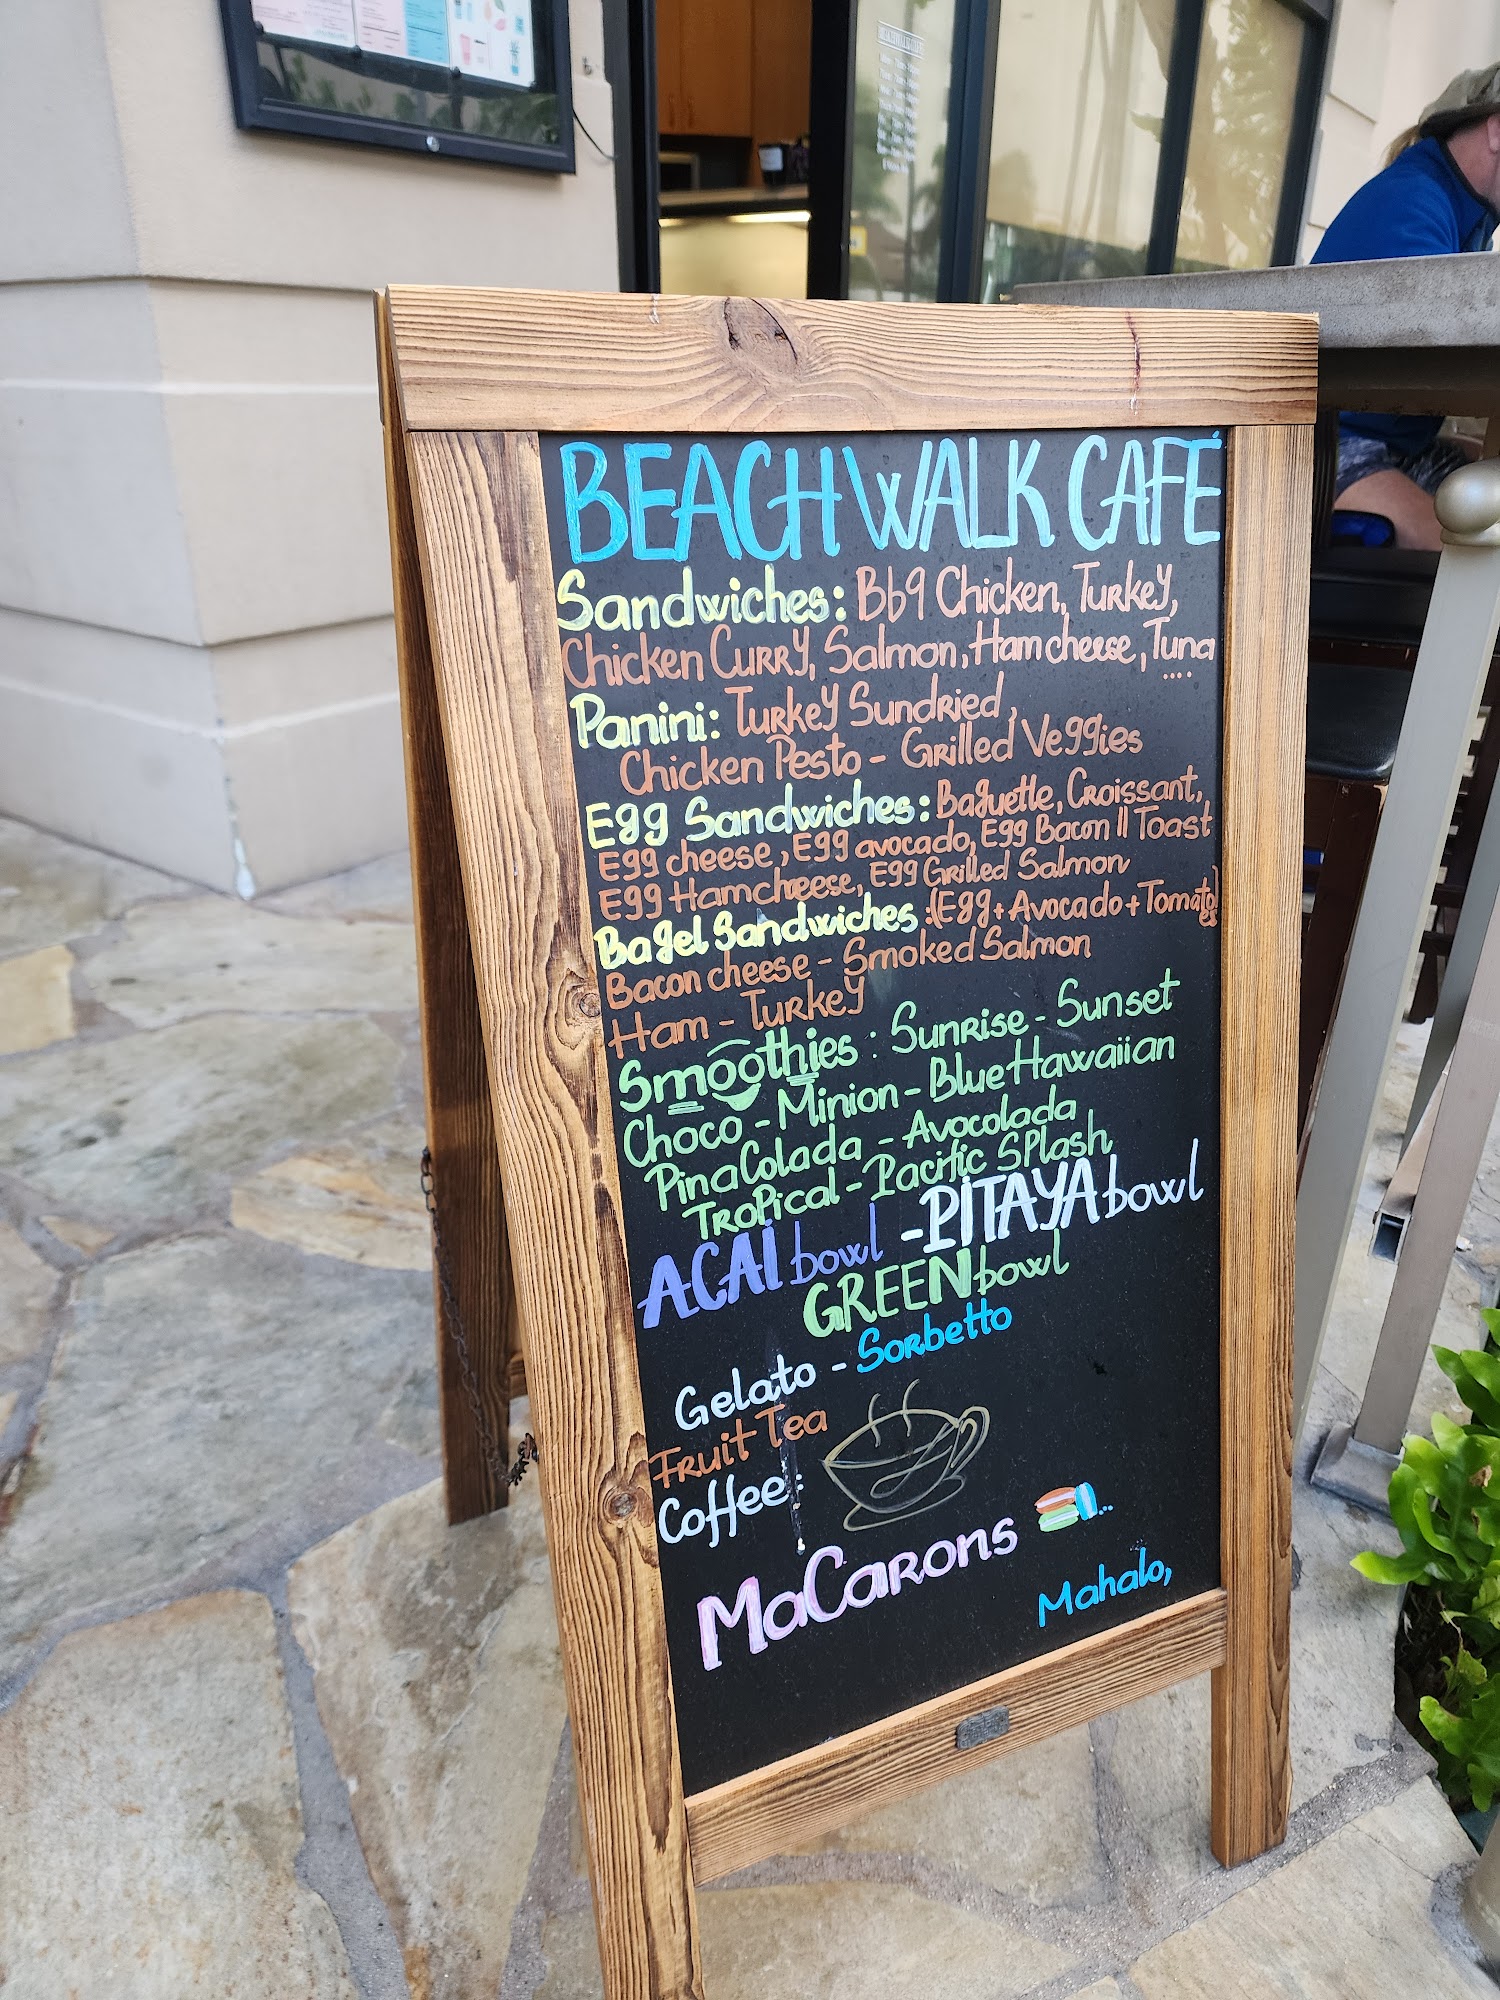 BEACHWALK CAFÉ
Sandwiches: Bbq Chicken, Turkey,
Chicken Curry, Salmon, Ham cheese, Tuna
....
Panini: Turkey Sundried,
Chicken Pesto - Grilled Veggies
Egg Sandwiches: Baguette, Croissant,
Egg cheese, Egg avocado, Egg Bacon II Toast
Egg Hamcheese, Egg Grilled Salmon
Bagel Sandwiches :(Egg + Avocado + Tomatoes)
Bacon cheese - Smoked Salmon
Ham - Turkey
Smoothies : Sunrise - Sunset
Choco - Minion - Blue Hawaiian
Pina Colada - Avocolada
Tropical - Pacific Splash
ACAI bowl - PITAYA bowl
GREEN bowl
Gelato - Sorbetto
Fruit Tea
Coffee:
MaCarons ...
Mahalo,